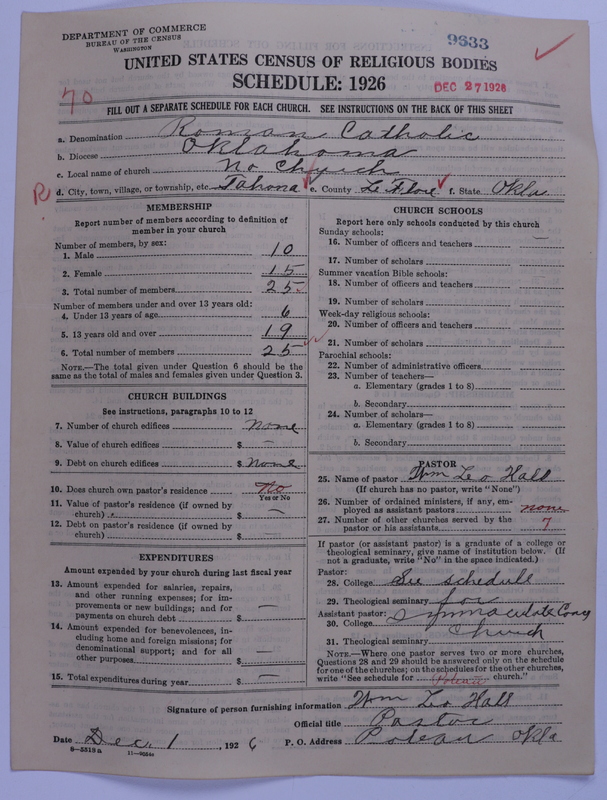 DEPARTMENT OF COMMERCE
BUREAU OF THE CENSUS
WASHINGTON
9633
UNITED STATES CENSUS OF RELIGIOUS BODIES
SCHEDULE: 1926
DEC 27 1926
70
FILL OUT A SEPARATE SCHEDULE FOR EACH CHURCH. SEE INSTRUCTIONS ON THE BACK OF THIS SHEET
a. Denomination Roman Catholic
b. Diocese Oklahoma
c. Local name of church No Church
R d. City, town, village, or township, etc. Tahona e. County Le Flore f. State Okla
MEMBERSHIP
Report number of members according to definition of
member in your church
Number of members, by sex:
1. Male 10
2. Female 15
3. Total number of members 25
Number of members under and over 13 years old:
4. Under 13 years of age 6
5. 13 years old and over 19
6. Total number of members 25
NOTE.—The total given under Question 6 should be the
same as the total of males and females given under Question 3.
CHURCH BUILDINGS
See instructions, paragraphs 10 to 12
7. Number of church edifices none
8. Value of church edifices $ —
9. Debt on church edifices $ None
10. Does church own pastor's residence No
Yes or No
11. Value of pastor's residence (if owned by
church) $ —
12. Debt on pastor's residence (if owned by
church) $
EXPENDITURES
Amount expended by your church during last fiscal year
13. Amount expended for salaries, repairs,
and other running expenses; for im-
provements or new buildings; and for
payments on church debt $ —
14. Amount expended for benevolences, in-
cluding home and foreign missions; for
denominational support; and for all
other purposes $ —
15. Total expenditures during year $ —
CHURCH SCHOOLS
Report here only schools conducted by this church
Sunday schools:
16. Number of officers and teachers —
17. Number of scholars
Summer vacation Bible schools:
18. Number of officers and teachers
19. Number of scholars
Week-day religious schools:
20. Number of officers and teachers
21. Number of scholars
Parochial schools:
22. Number of administrative officers
23. Number of teachers—
a. Elementary (grades 1 to 8)
b. Secondary
24. Number of scholars—
a. Elementary (grades 1 to 8)
b. Secondary
PASTOR
25. Name of pastor Wm Leo Hall
(If church has no pastor, write "None")
26. Number of ordained ministers, if any, em-
ployed as assistant pastors none
27. Number of other churches served by the
pastor or his assistants 7
If pastor (or assistant pastor) is a graduate of a college or
theological seminary, give name of institution below. (If
not a graduate, write "No" in the space indicated.)
Pastor:
28. College See schedule
29. Theological seminary for
Assistant pastor:
30. College Immaculate Conc
Church
31. Theological seminary
NOTE.—Where one pastor serves two or more churches,
Questions 28 and 29 should be answered only on the schedule
for one of the churches; on the schedules for the other churches,
write "See schedule for Poteau church."
Signature of person furnishing information Wm Leo Hall
Official title Pastor
Date Dec. 1, 1926 P. O. Address Poteau Okla
8—5518a